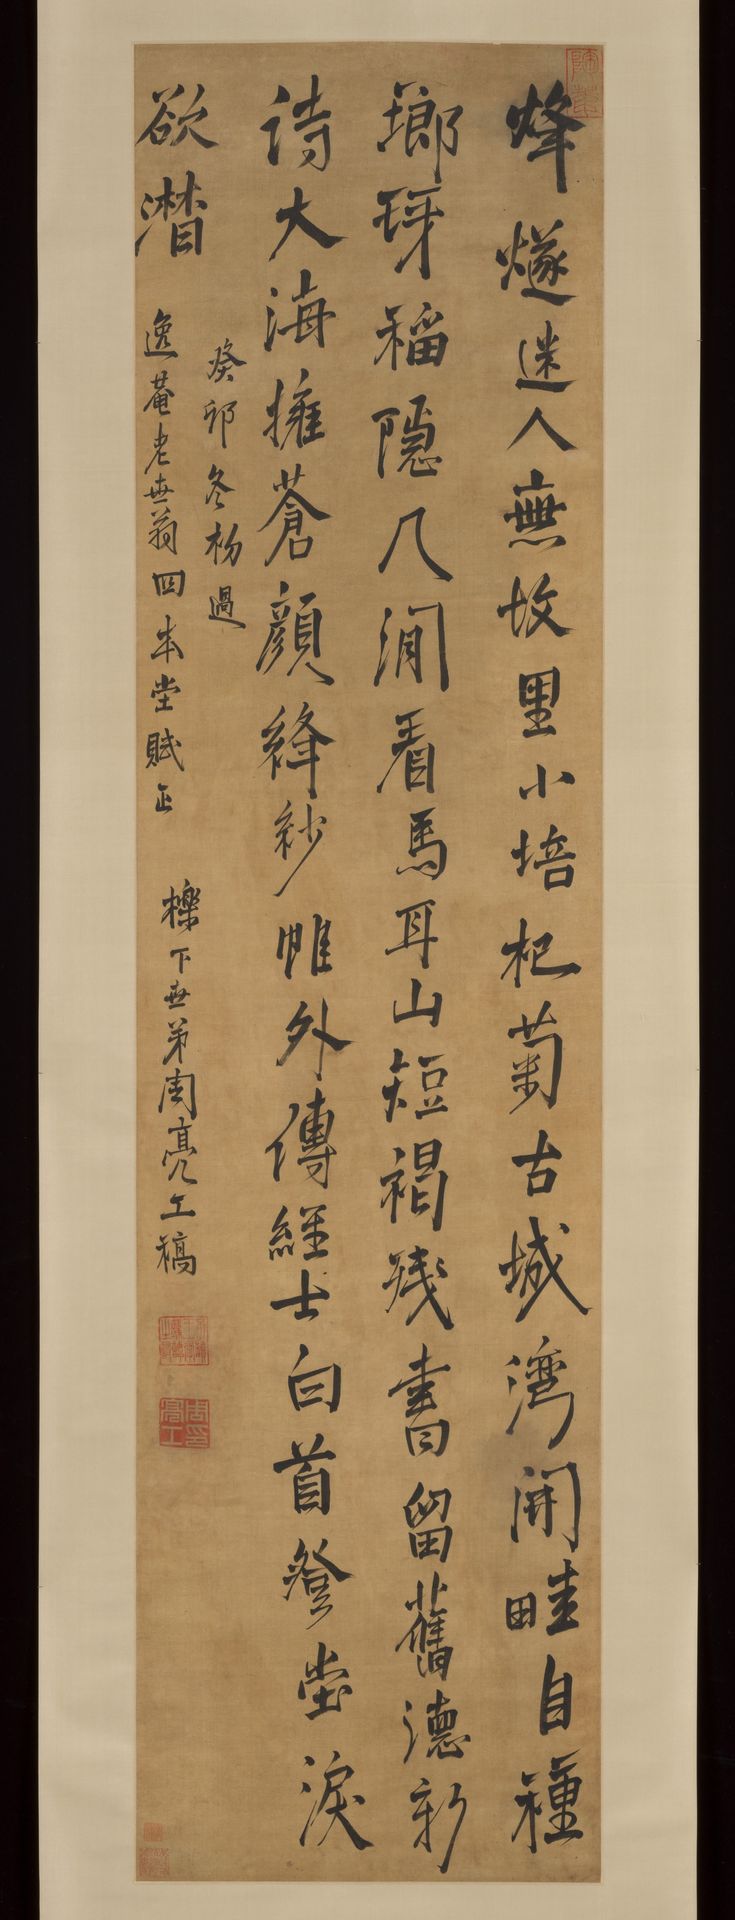 烽燧迷人無故里小培杞菊古城灣開畦自種
瑯琊稻隱几閒看馬耳山短褐殘書留舊德新
詩大海擁蒼顏絳紗帷外傳經士白首登堂淚
欲潸
癸卯冬杪過
逸菴老世翁四本堂賦正
櫟下世弟周亮工稿
周亮工印